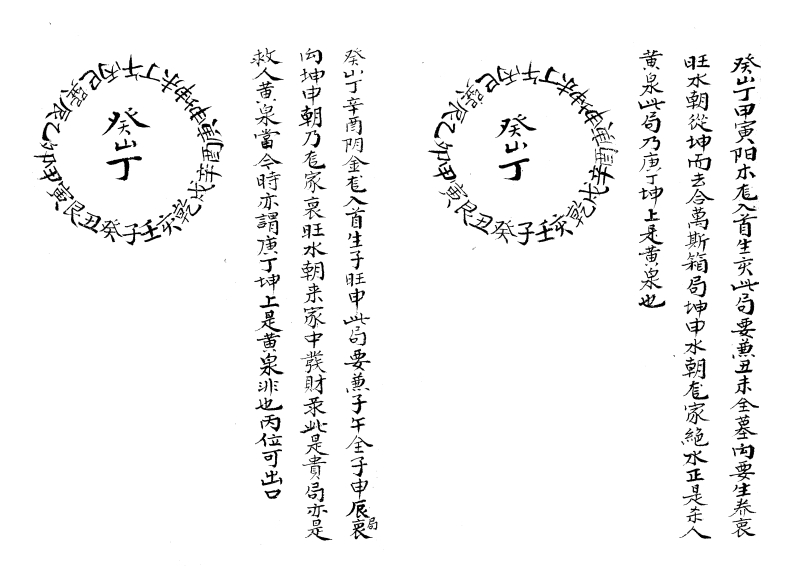 癸山丁甲寅阳木龙入首生亥此局要兼丑未全墓向要生养衰
旺水朝從坤而去合萬斯箱局坤申水朝龙家絶水正是杀人
黄泉此局乃庚丁坤上是黄泉也
癸山丁
子癸丑艮寅甲卯乙辰巽巳丙午丁未坤申庚酉辛戌乾亥壬
癸山丁辛酉阴金龙入首生子旺申此局要兼子午全子申辰局衰
向坤申朝乃龙家衰旺水朝来家中發財录此是貴局亦是
救人黄泉當令時亦謂庚丁坤上是黄泉非也丙位可出口
癸山丁
子癸丑艮寅甲卯乙辰巽巳丙午丁未坤申庚酉辛戌乾亥壬